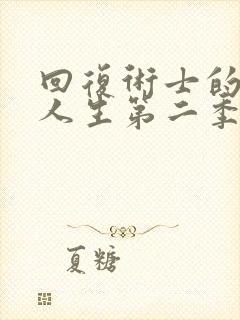 回復術士的
人生第二季
夏糖